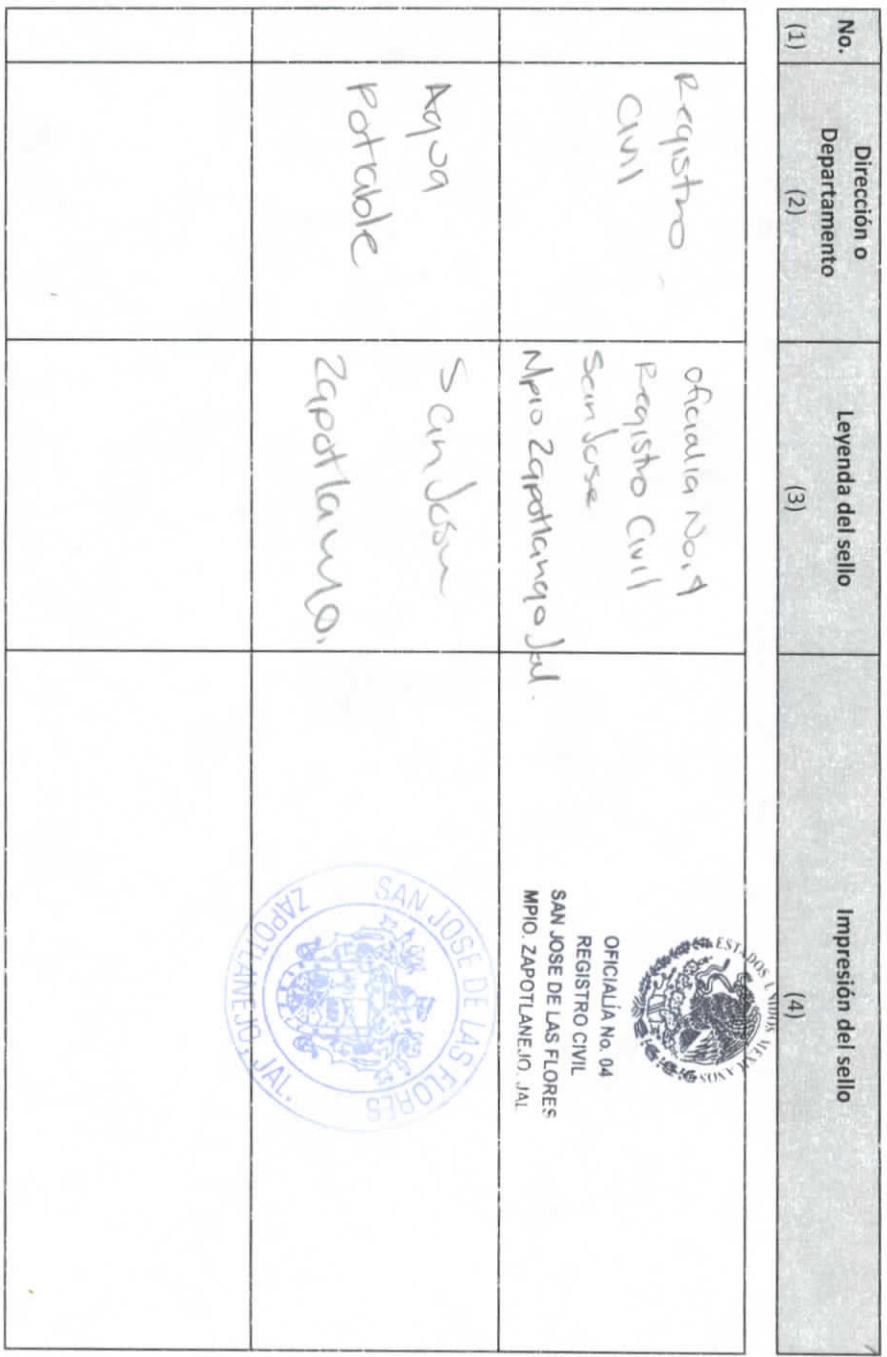 No.
(1)
Dirección o
Departamento
(2)
Leyenda del sello
(3)
Impresión del sello
(4)
Registro
Civil
Oficialia No. 4
Registro Civil
San Jose
Mpio Zapotlanejo Jal.
ESTADOS UNIDOS MEXICANOS
OFICIALÍA No. 04
REGISTRO CIVIL
SAN JOSE DE LAS FLORES
MPIO. ZAPOTLANEJO, JAL
Agua
Potable
San
SAN JOSE DE LAS FLORES
ZAPOTLANEJO, JAL.